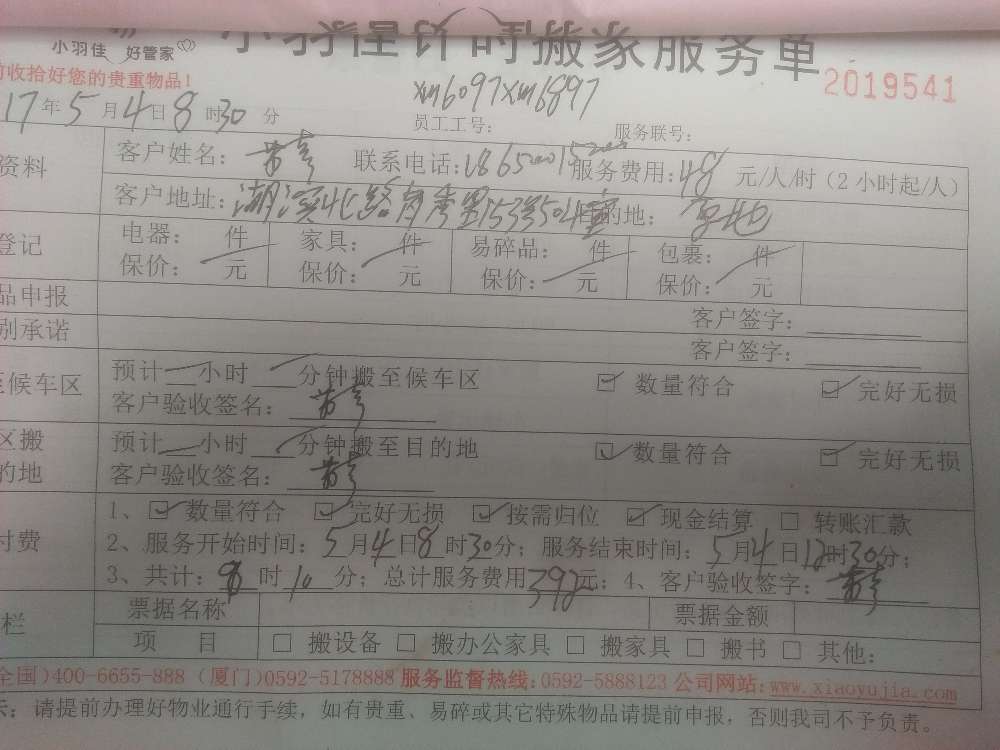 小羽佳 好管家 小羽佳计时搬家服务单
前收拾好您的贵重物品！ 2019541
17年5月4日8时30分 员工工号：xm6097xm6897 服务联号：
资料 客户姓名： 联系电话： 服务费用：48元/人/时（2小时起/人）
客户地址：湖滨北路 153号504 目的地：
登记 电器： 件 家具： 件 易碎品： 件 包裹： 件
保价： 元 保价： 元 保价： 元 保价： 元
品申报 客户签字：
别承诺 客户签字：
至候车区 预计 小时 分钟搬至候车区 ☑ 数量符合 ☑ 完好无损
客户验收签名：
区搬 预计 小时 分钟搬至目的地 ☑ 数量符合 ☑ 完好无损
的地 客户验收签名：
付费 1、☑ 数量符合 ☑ 完好无损 ☑ 按需归位 ☑ 现金结算 □ 转账汇款
2、服务开始时间：5月4日8时30分；服务结束时间：5月4日12时30分；
3、共计：8时10分；总计服务费用392元；4、客户验收签字：
栏 票据名称 票据金额
项 目 □ 搬设备 □ 搬办公家具 □ 搬家具 □ 搬书 □ 其他：
全国）400-6655-888（厦门）0592-5178888 服务监督热线：0592-5888123 公司网站：www.xiaoyujia.com
示：请提前办理好物业通行手续，如有贵重、易碎或其它特殊物品请提前申报，否则我司不予负责。